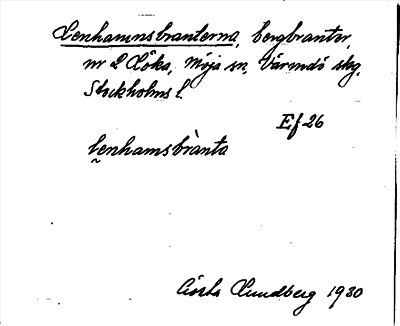 Lenhamnsbranterna, bergbranter,
nr 2 Löka, Möja sn, Värmdö skg,
Stockholms l.
Ef 26
lenhamsbrànta
Gösta Lundberg 1930